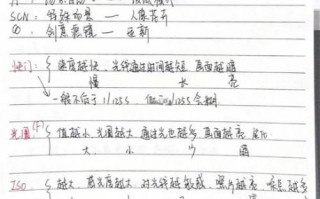 SCN: 特殊场景 — 人像夜景
创意滤镜 —
快门: { 速度越快, 光线通过时间越短, 画面越暗
慢 长 亮
一般不低于 1/125s, 1/125s会糊
光圈(F): { 值越小 光圈越大 通过光也越多 画面越亮
大 小 少 暗
ISO: { 越大, 感光度越大, 对光线越敏感, 照片越亮, 噪点越多